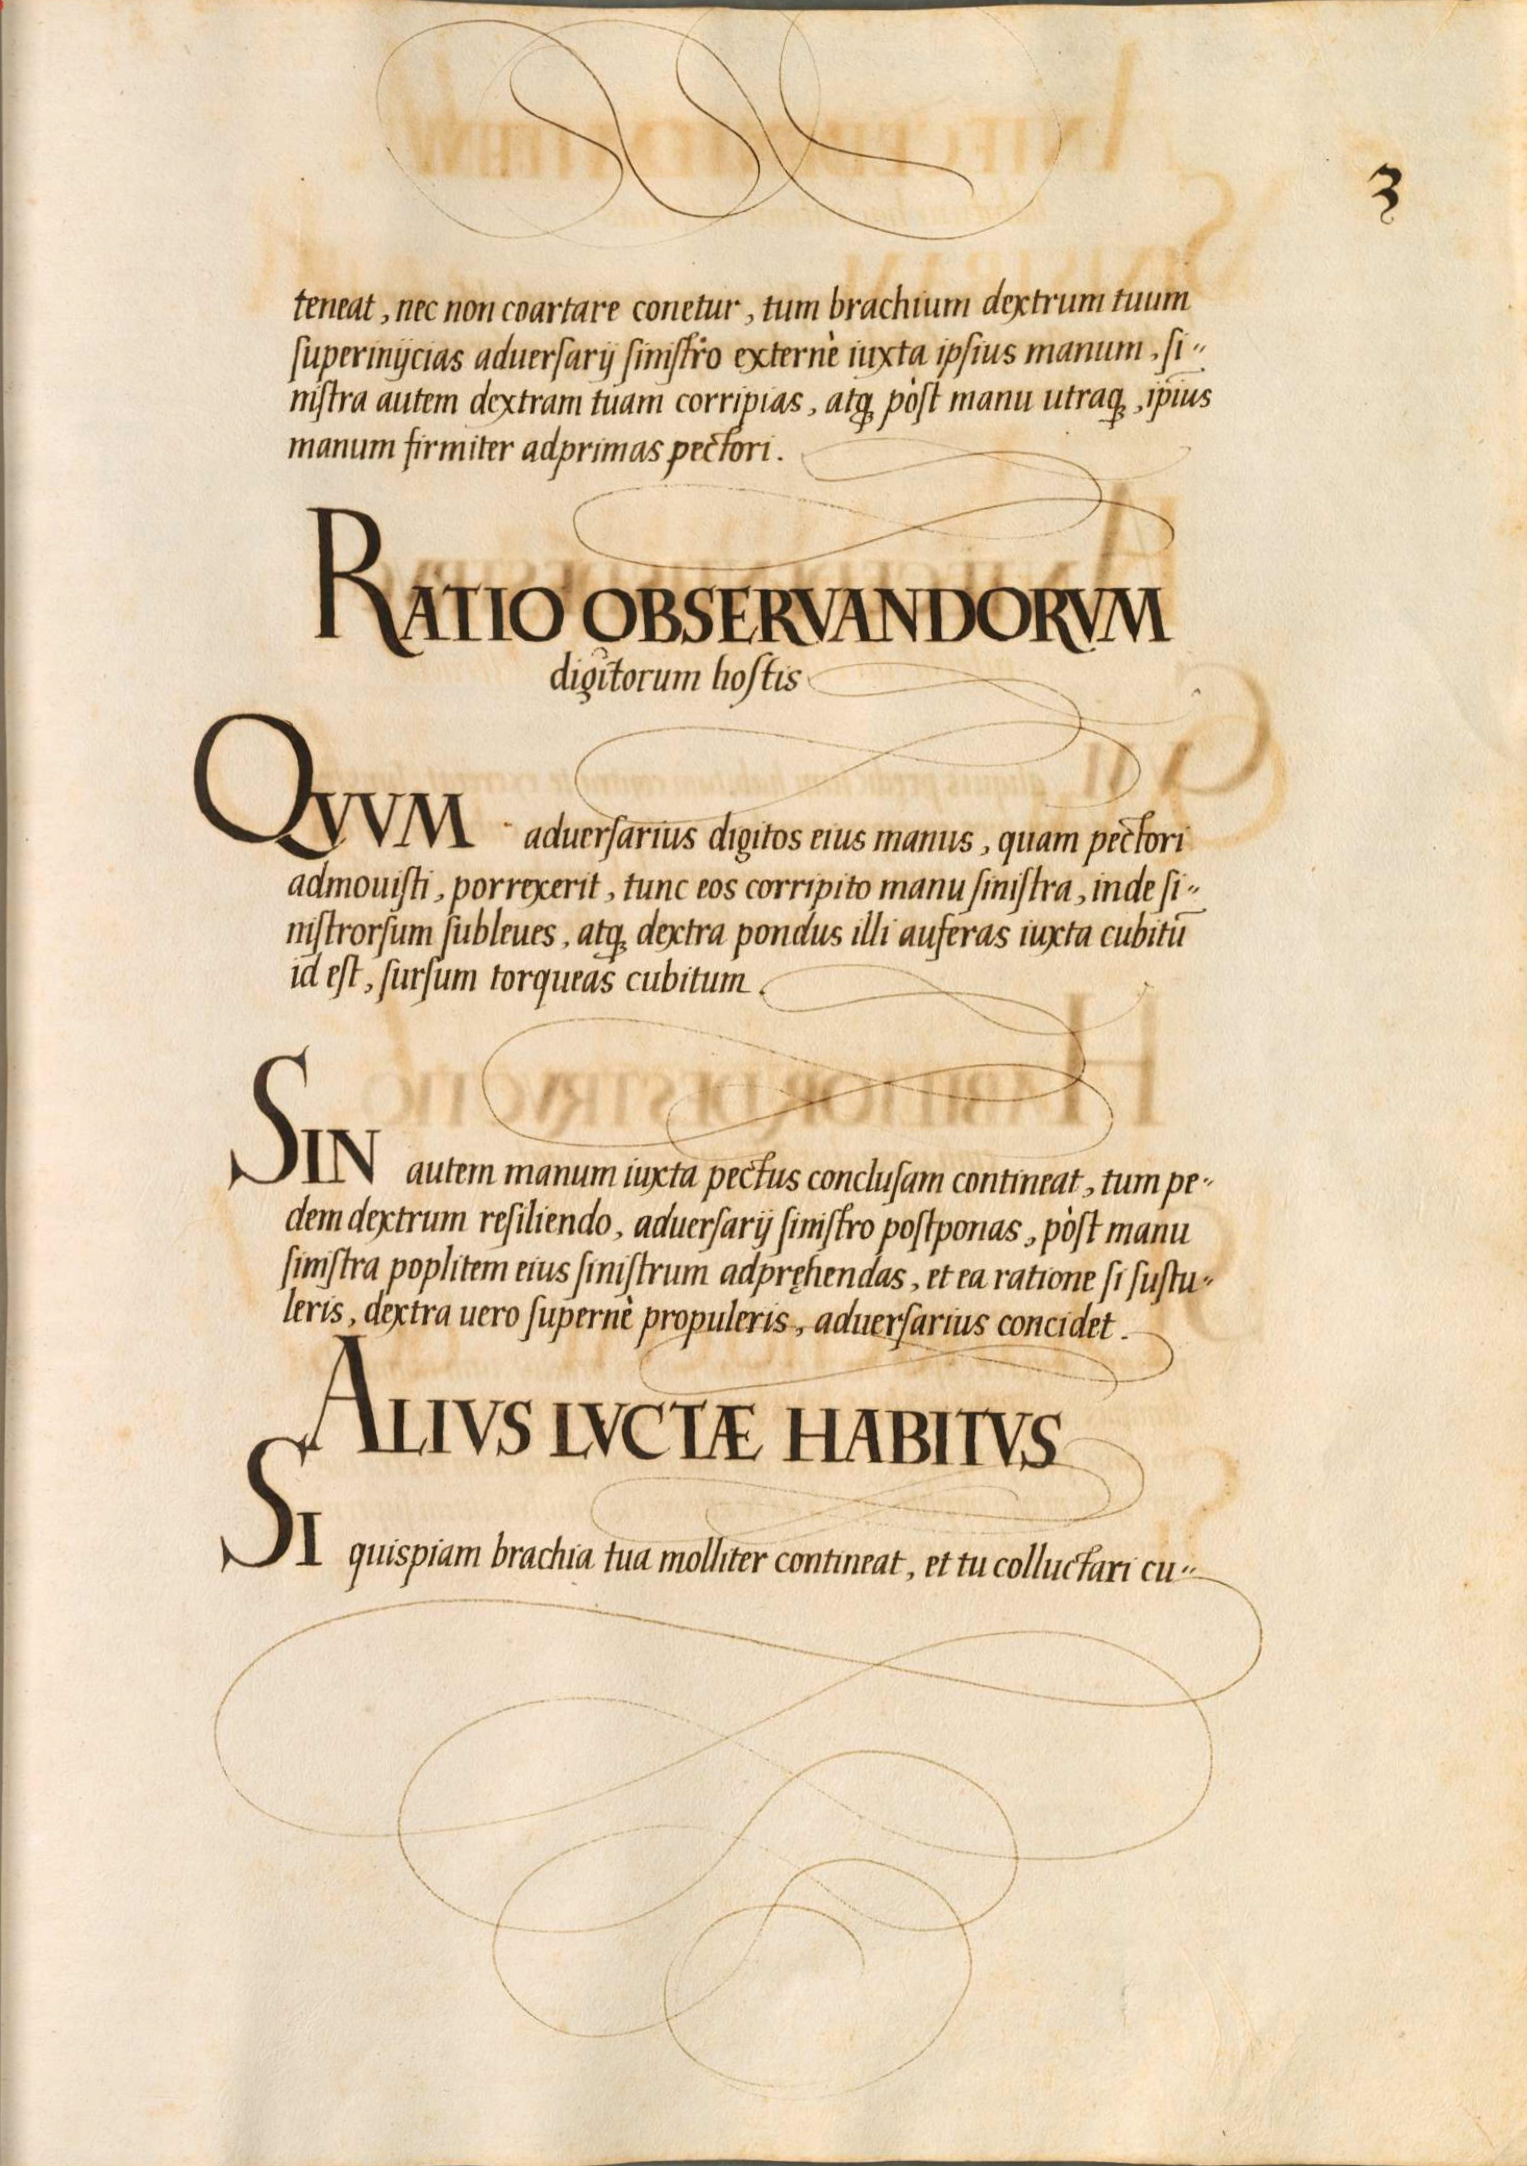 3
teneat, nec non coartare conetur, tum brachium dextrum tuum
ſuperinÿcias aduerſarÿ ſiniſtro externè iuxta ipſius manum, ſi〃
niſtra autem dextram tuam corripias, atq; pòſt manu utraq;, ip̄ius
manum firmiter adprimas pectori.
RATIO OBSERVANDORVM
digitorum hoſtis
QVVM aduerſarius digitos eius manus, quam pectori
admouiſti, porrexerit, tunc eos corripito manu ſiniſtra, inde ſi〃
niſtrorſum ſubleues, atq; dextra pondus illi auferas iuxta cubitū
id eſt, ſurſum torqueas cubitum.
SIN autem manum iuxta pectus concluſam contineat, tum pe〃
dem dextrum reſiliendo, aduerſarÿ ſiniſtro poſtponas, pòſt manu
ſiniſtra poplitem eius ſiniſtrum adpręhendas, et ea ratione ſi ſuſtu〃
leris, dextra uero ſupernè propuleris, aduerſarius concidet.
ALIVS LVCTÆ HABITVS
SI quispiam brachia tua molliter contineat, et tu colluctari cu〃